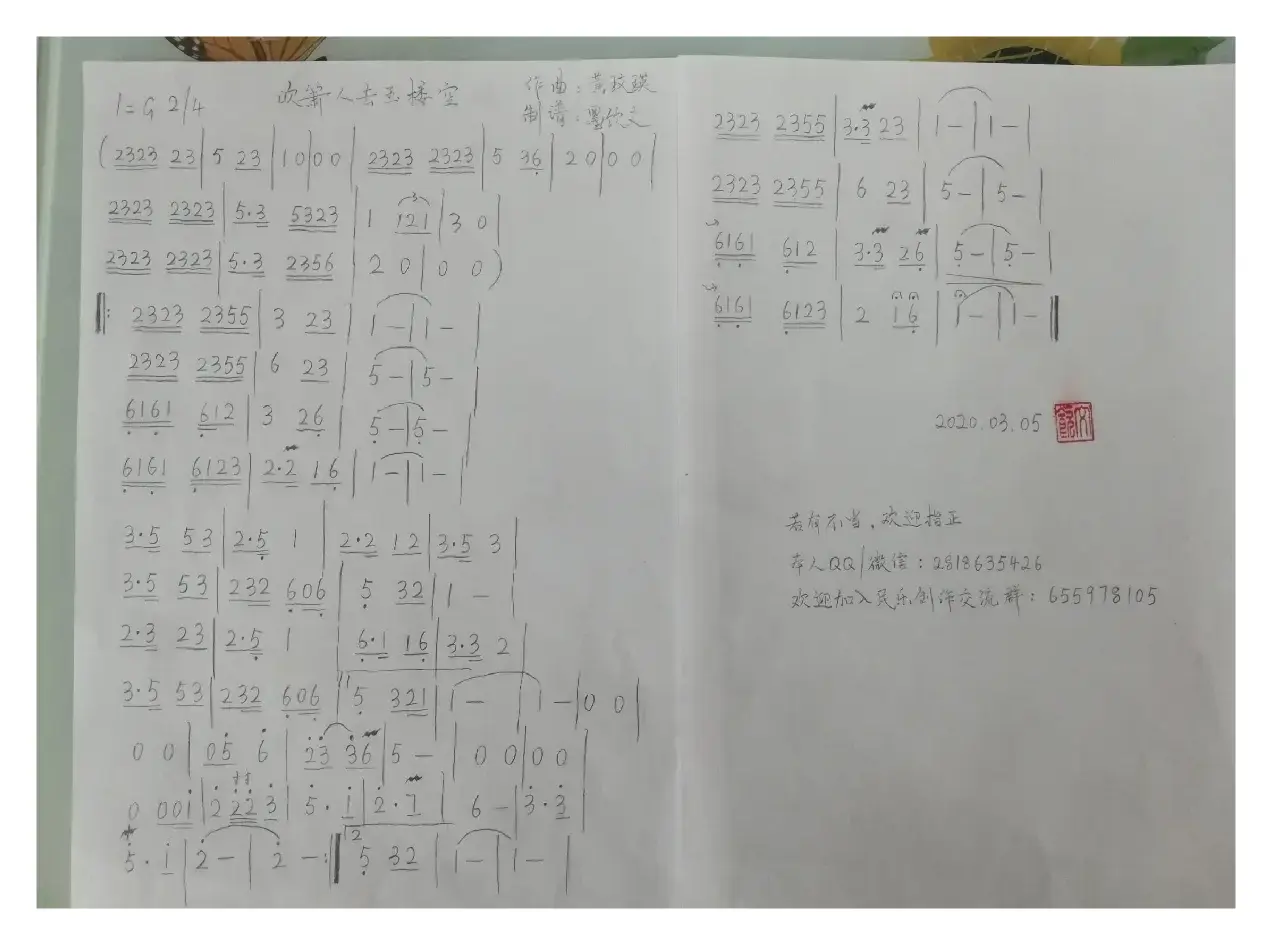 1=G 2/4
吹箫人去玉楼空
作曲：黄玟瑛
制谱：墨饮文
( 2323 23 | 5 23 | 1 0 | 0 0 | 2323 2323 | 5 36 | 2 0 | 0 0 |
2323 2323 | 5·3 5323 | 1 121 | 3 0 |
2323 2323 | 5·3 2356 | 2 0 | 0 0 )
‖: 2323 2355 | 3 23 | 1 — | 1 — |
2323 2355 | 6 23 | 5 — | 5 — |
6161 612 | 3 26 | 5 — | 5 — |
6161 6123 | 2·2 16 | 1 — | 1 — |
3·5 53 | 2·5 1 | 2·2 12 | 3·5 3 |
3·5 53 | 232 606 | 5 32 | 1 — |
2·3 23 | 2·5 1 | 6·1 16 | 3·3 2 |
3·5 53 | 232 606 | 5 321 | 1 — | 1 — | 0 0 |
0 0 | 05 6 | 23 36 | 5 — | 0 0 | 0 0 |
0 001 | 2 22 3 | 5· 1 | 2· 7 | 6 — | 3·3
5· 1 | 2 — | 2 — :‖ 2 5 32 | 1 — | 1 — |
2323 2355 | 3·3 23 | 1 — | 1 — |
2323 2355 | 6 23 | 5 — | 5 — |
6161 612 | 3·3 26 | 5 — | 5 — |
6161 6123 | 2 16 | 1 — | 1 — ‖
2020.03.05
若有不当，欢迎指正
本人QQ/微信：2818635426
欢迎加入民乐创作交流群：655978105